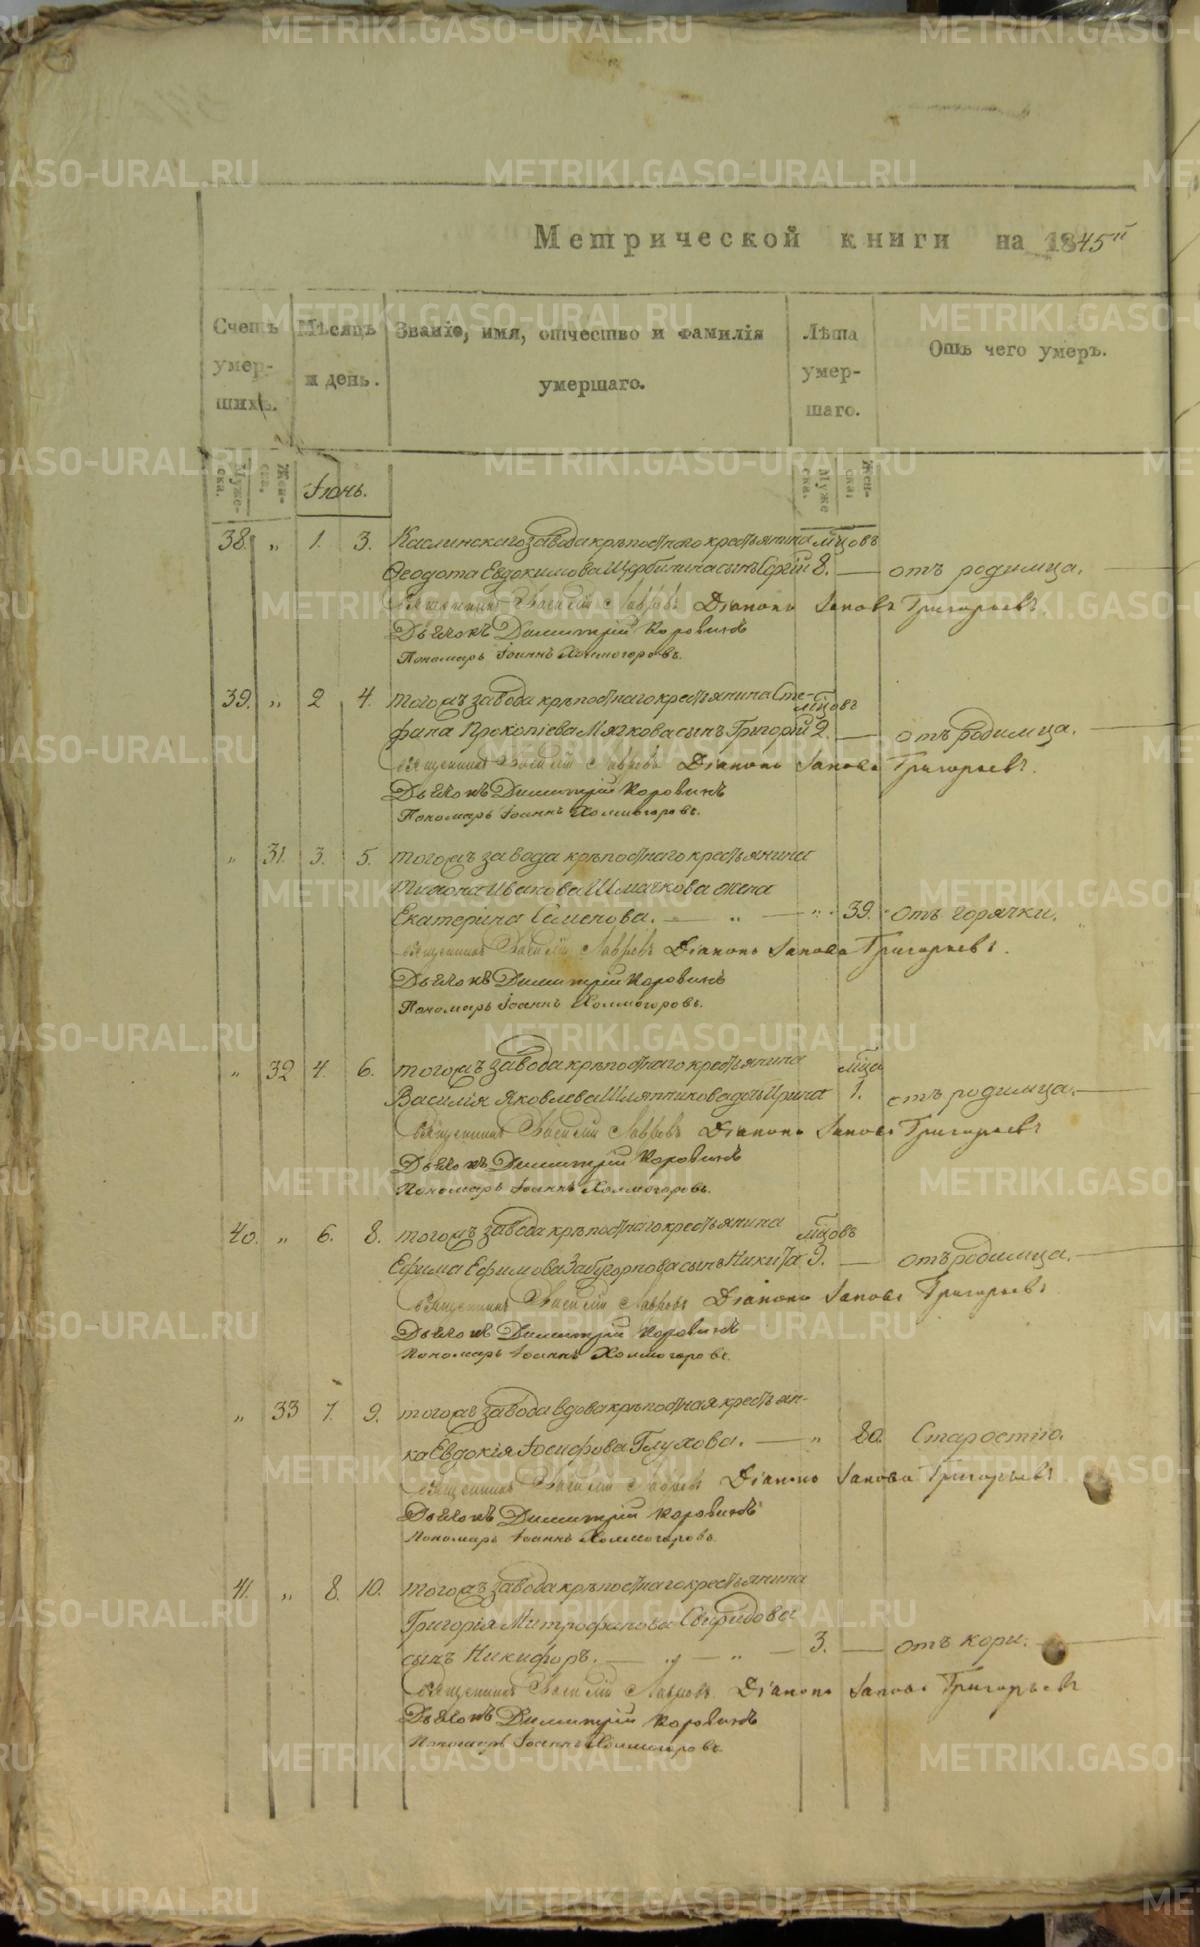 Метрической книги на 1845й
Счетъ умер-шихъ.
Мѣсяцъ и день.
Званіе, имя, отчество и фамилія умершаго.
Лѣта умер-шаго.
Отъ чего умеръ.
Муже-ска. Жен-ска.
Іюнь.
Муже ска. Жен-ска.
38. „ 1. 3. Каслинскаго завода крѣпостнаго крестьянина мцовъ
Ѳеодота Евдокимова Щербинина сынъ Сергій 8. — отъ родимца.
Священникъ Василій Лавровъ Діаконъ Іаковъ Григорьевъ.
Дьячокъ Димитрій Коровинъ
Пономарь Іоаннъ Холмогоровъ.
39. „ 2 4. тогожъ завода крѣпостнаго крестьянина Сте- мцовъ
фана Прокопіева Мягкова сынъ Григорій 2. — отъ родимца.
Священникъ Василій Лавровъ Діаконъ Іаковъ Григорьевъ.
Дьячокъ Димитрій Коровинъ
Пономарь Іоаннъ Холмогоровъ.
„ 31. 3. 5. тогожъ завода крѣпостнаго крестьянина
Иванова Шмачкова жена
Екатерина Семенова. — „ — „ 39. отъ горячки.
Священникъ Василій Лавровъ Діаконъ Іаковъ Григорьевъ.
Дьячокъ Димитрій Коровинъ
Пономарь Іоаннъ Холмогоровъ.
„ 32 4. 6. тогожъ завода крѣпостнаго крестьянина мца
Василія Яковлева Шляпникова дочь Ирина 1. отъ родимца.
Священникъ Василій Лавровъ Діаконъ Іаковъ Григорьевъ
Дьячокъ Димитрій Коровинъ
Пономарь Іоаннъ Холмогоровъ.
40. „ 6. 8. тогожъ завода крѣпостнаго крестьянина мцовъ
Ефима Ефимова Забугорнова сынъ Никита 9. — отъ родимца.
Священникъ Василій Лавровъ Діаконъ Іаковъ Григорьевъ
Дьячокъ Димитрій Коровинъ
Пономарь Іоаннъ Холмогоровъ.
„ 33 7. 9. тогожъ завода вдова крѣпостная крестьян-
ка Евдокія Іосифова Глухова. — „ 80. Старостію.
Священникъ Василій Лавровъ Діаконъ Іаковъ Григорьевъ
Дьячокъ Димитрій Коровинъ
Пономарь Іоаннъ Холмогоровъ
41. „ 8. 10. тогожъ завода крѣпостнаго крестьянина
Григорія Митрофанова Свиридова
сынъ Никифоръ. — „ — „ — 3. — отъ кори.
Священникъ Василій Лавровъ Діаконъ Іаковъ Григорьевъ
Дьячокъ Димитрій Коровинъ
Пономарь Іоаннъ Холмогоровъ
METRIKI.GASO-URAL.RU